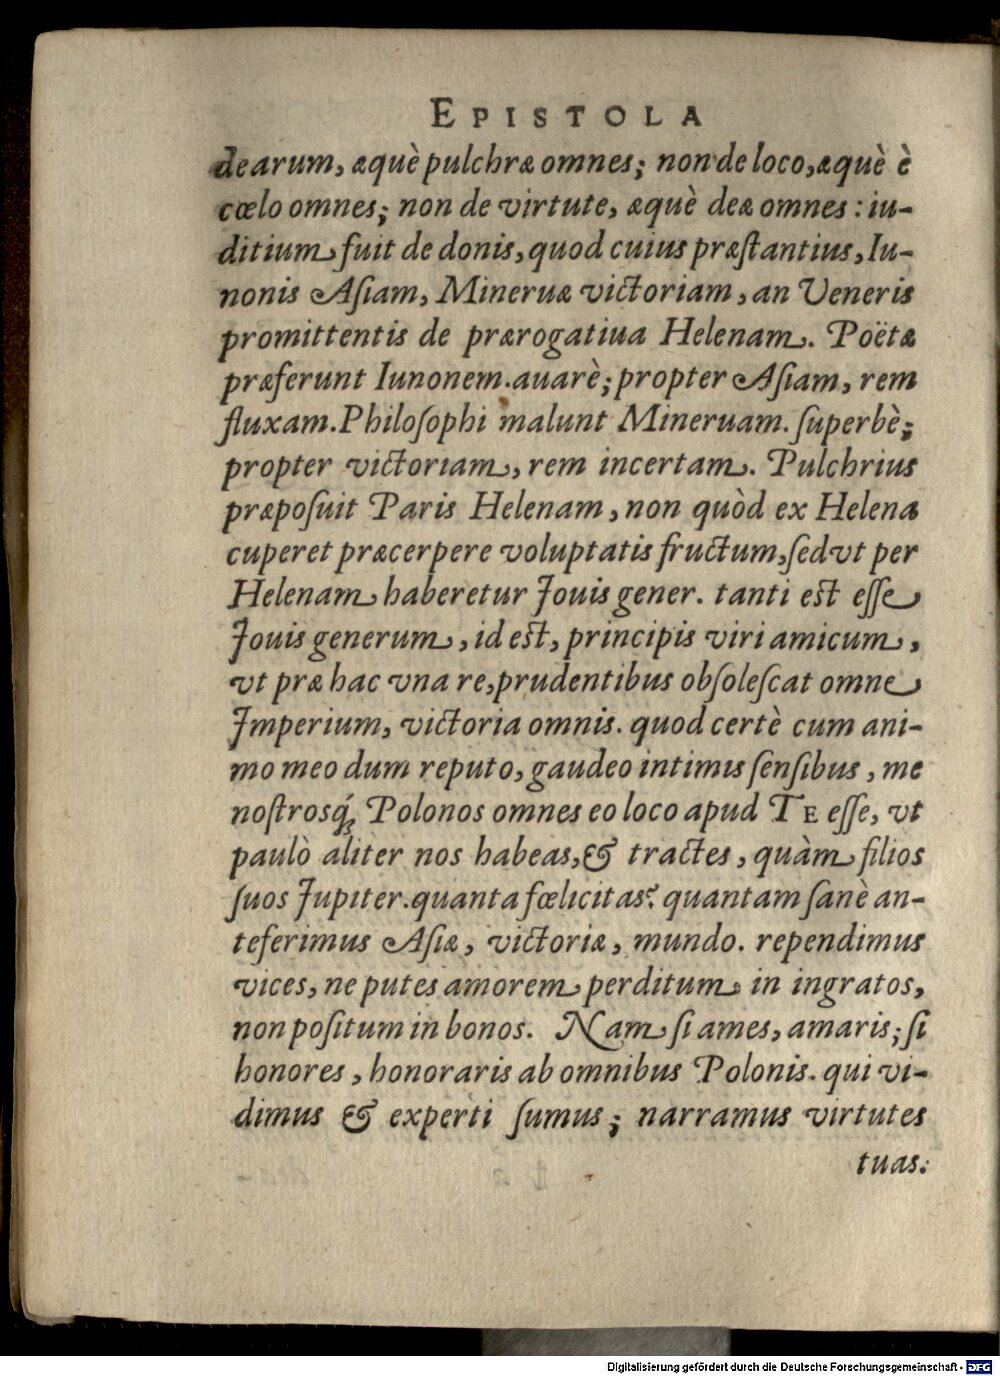 EPISTOLA
dearum, æquè pulchræ omnes; non de loco, æquè è
cœlo omnes; non de virtute, æquè deæ omnes: iu-
ditium fuit de donis, quod cuius præſtantius, Iu-
nonis Aſiam, Mineruæ victoriam, an Veneris
promittentis de prærogatiua Helenam. Poëtæ
præferunt Iunonem. auarè; propter Aſiam, rem
fluxam. Philoſophi malunt Mineruam. ſuperbè;
propter victoriam, rem incertam. Pulchrius
præpoſuit Paris Helenam, non quòd ex Helena
cuperet præcerpere voluptatis fructum, ſed vt per
Helenam haberetur Jouis gener. tanti est eſſe
Jouis generum, id est, principis viri amicum,
vt præ hac vna re, prudentibus obſoleſcat omne
Jmperium, victoria omnis. quod certè cum ani-
mo meo dum reputo, gaudeo intimis ſenſibus, me
noſtrosq́; Polonos omnes eo loco apud TE eſſe, vt
paulò aliter nos habeas, & tractes, quàm filios
ſuos Jupiter. quanta fœlicitas? quantam ſanè an-
teferimus Aſiæ, victoriæ, mundo. rependimus
vices, ne putes amorem perditum in ingratos,
non poſitum in bonos. Nam ſi ames, amaris; ſi
honores, honoraris ab omnibus Polonis. qui vi-
dimus & experti ſumus; narramus virtutes
tuas:
Digitalisierung gefördert durch die Deutsche Forschungsgemeinschaft - DFG